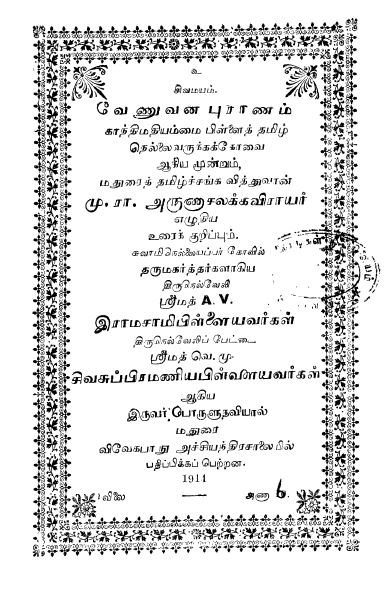 உ
சிவமயம்.
வேணுவன புராணம்
காந்திமதியம்மை பிள்ளைத் தமிழ்
நெல்லைவருக்கக்கோவை
ஆகிய மூன்றும்,
மதுரைத் தமிழ்ச்சங்க வித்துவான்
மு. ரா. அருணாசலக்கவிராயர்
எழுதிய
உரைக் குறிப்பும்.
சுவாமிநெல்லையப்பர் கோவில்
தருமகர்த்தர்களாகிய
திருநெல்வேலி
ஸ்ரீமத் A. V.
இராமசாமிபிள்ளையவர்கள்
திருநெல்வேலிப் பேட்டை
ஸ்ரீமத் வெ. மு.
சிவசுப்பிரமணியபிள்ளையவர்கள்
ஆகிய
இருவர் பொருளுதவியால்
மதுரை
விவேகபாநு அச்சியந்திரசாலையில்
பதிப்பிக்கப் பெற்றன.
1914
விலை அணா 6.